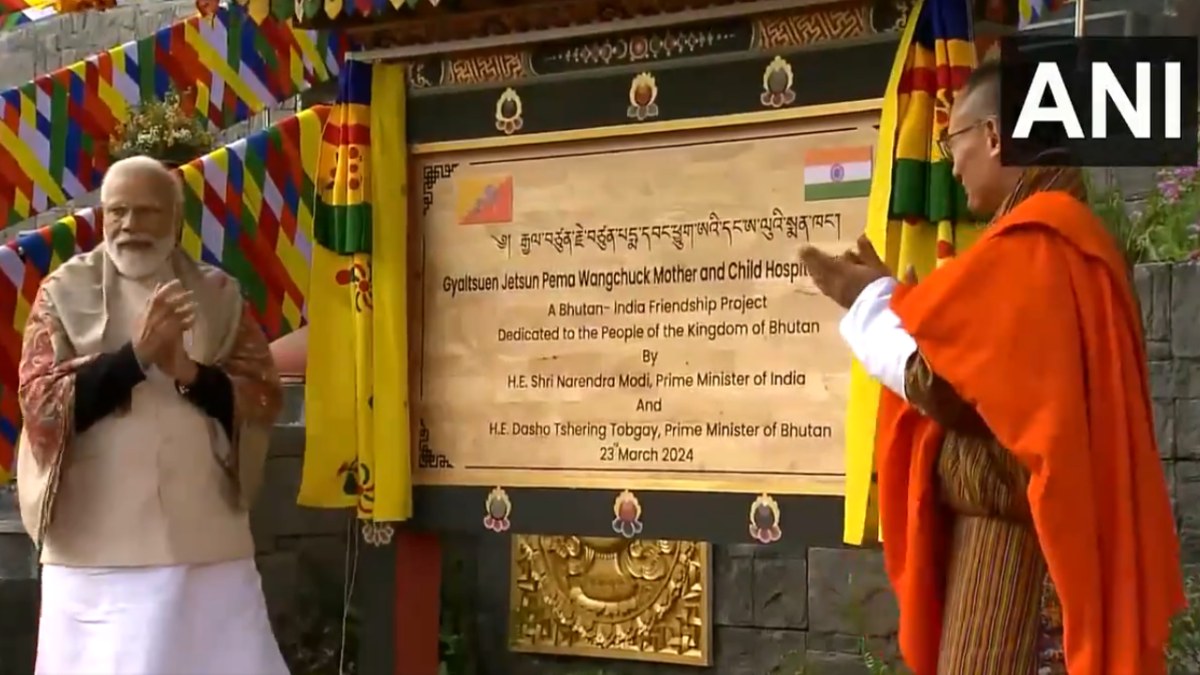 ANI
༄། རྒྱལ་བཙུན་རྗེ་བཙུན་པདྨ་དབང་ཕྱུག་ཨའི་དང་ཨ་ལུའི་སྨན་ཁང་།
Gyaltsuen Jetsun Pema Wangchuck Mother and Child Hospi
A Bhutan- India Friendship Project
Dedicated to the People of the Kingdom of Bhutan
By
H.E. Shri Narendra Modi, Prime Minister of India
And
H.E. Dasho Tshering Tobgay, Prime Minister of Bhutan
23rd March 2024